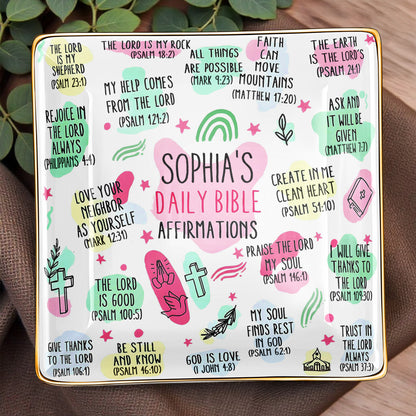 THE LORD
IS MY
SHEPHERD
(PSALM 23:1)
THE LORD IS MY ROCK
(PSALM 18:2)
ALL THINGS
ARE POSSIBLE
(MARK 9:23)
FAITH
CAN
MOVE
MOUNTAINS
(MATTHEW 17:20)
THE EARTH
IS THE LORD'S
(PSALM 24:1)
MY HELP COMES
FROM THE LORD
(PSALM 121:2)
REJOICE IN
THE LORD
ALWAYS
(PHILIPPIANS 4:4)
ASK AND
IT WILL BE
GIVEN
(MATTHEW 7:7)
SOPHIA'S
DAILY BIBLE
AFFIRMATIONS
LOVE YOUR
NEIGHBOR
AS YOURSELF
(MARK 12:31)
CREATE IN ME
CLEAN HEART
(PSALM 51:10)
PRAISE THE LORD
MY SOUL
(PSALM 146:1)
I WILL GIVE
THANKS TO
THE LORD
(PSALM 109:30)
THE LORD
IS GOOD
(PSALM 100:5)
GIVE THANKS
TO THE LORD
(PSALM 106:1)
BE STILL
AND KNOW
(PSALM 46:10)
GOD IS LOVE
(1 JOHN 4:8)
MY SOUL
FINDS REST
IN GOD
(PSALM 62:1)
TRUST IN
THE LORD
ALWAYS
(PSALM 37:3)